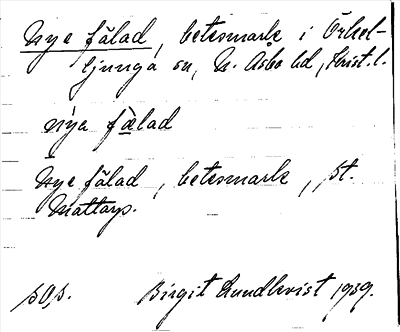 Nye fälad, betesmark i Örkel-
ljunga sn, N. Åsbo hd, Krist. l.
nýa fälad
Nye fälad, betesmark, st.
Mattarp.
Birgit Lundkvist 1939.